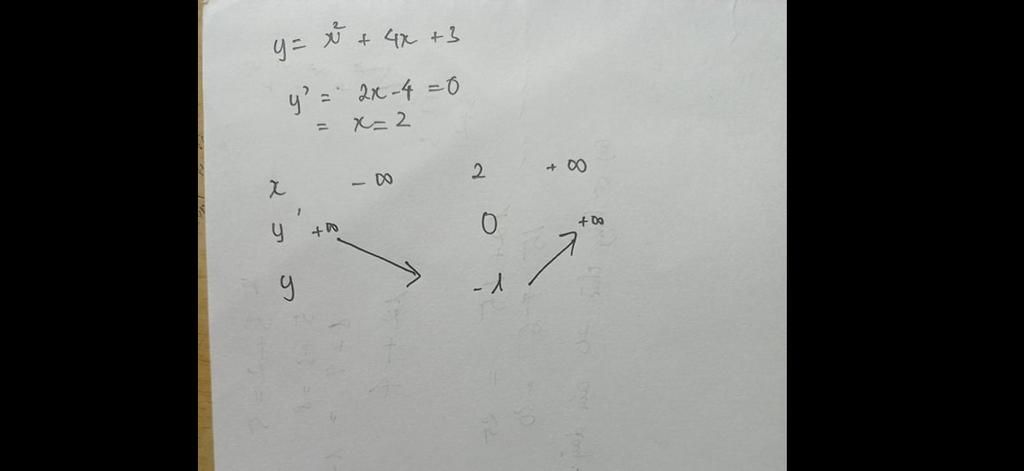 y = x² + 4x + 3
y' = 2x - 4 = 0
= x = 2
x -∞ 2 +∞
y' +∞ 0 +∞
y -1